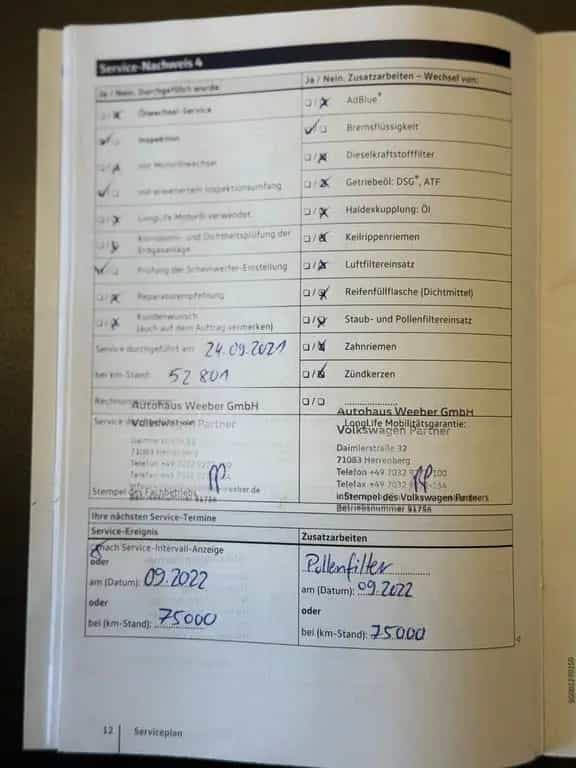 Service-Nachweis 4
Ja / Nein. Durchgeführt wurde
Ölwechsel-Service
Inspektion
mit erweitertem Inspektionsumfang
LongLife Motoröl verwendet
Korrosions- und Dichtheitsprüfung der
Erdgasanlage
Prüfung der Scheinwerfer-Einstellung
Reparaturempfehlung
Kundenwunsch
(auch auf dem Auftrag vermerken)
Service durchgeführt am: 24.09.2021
bei km-Stand: 52 801
Autohaus Weeber GmbH
Volkswagen Partner
Daimlerstraße 32
71083 Herrenberg
Telefon +49 7032
Stempel des Fachbetriebs
Ja / Nein. Zusatzarbeiten – Wechsel von:
☐ / ☒ AdBlue®
☑ / ☐ Bremsflüssigkeit
☐ / ☒ Dieselkraftstofffilter
☐ / ☒ Getriebeöl: DSG®, ATF
☐ / ☒ Haldexkupplung: Öl
☐ / ☒ Keilrippenriemen
☐ / ☒ Luftfiltereinsatz
☐ / ☒ Reifenfüllflasche (Dichtmittel)
☐ / ☒ Staub- und Pollenfiltereinsatz
☐ / ☒ Zahnriemen
☐ / ☒ Zündkerzen
☐ / ☐ ....................
Autohaus Weeber GmbH
LongLife Mobilitätsgarantie:
Volkswagen Partner
Daimlerstraße 32
71083 Herrenberg
Telefon +49 7032
Telefax +49 7032
Stempel des Volkswagen Partners
Betriebsnummer 91756
Ihre nächsten Service-Termine
Service-Ereignis
☒ nach Service-Intervall-Anzeige
oder
am (Datum): 09.2022
oder
bei (km-Stand): 75000
Zusatzarbeiten
Pollenfilter
am (Datum): 09.2022
oder
bei (km-Stand): 75000
12 | Serviceplan